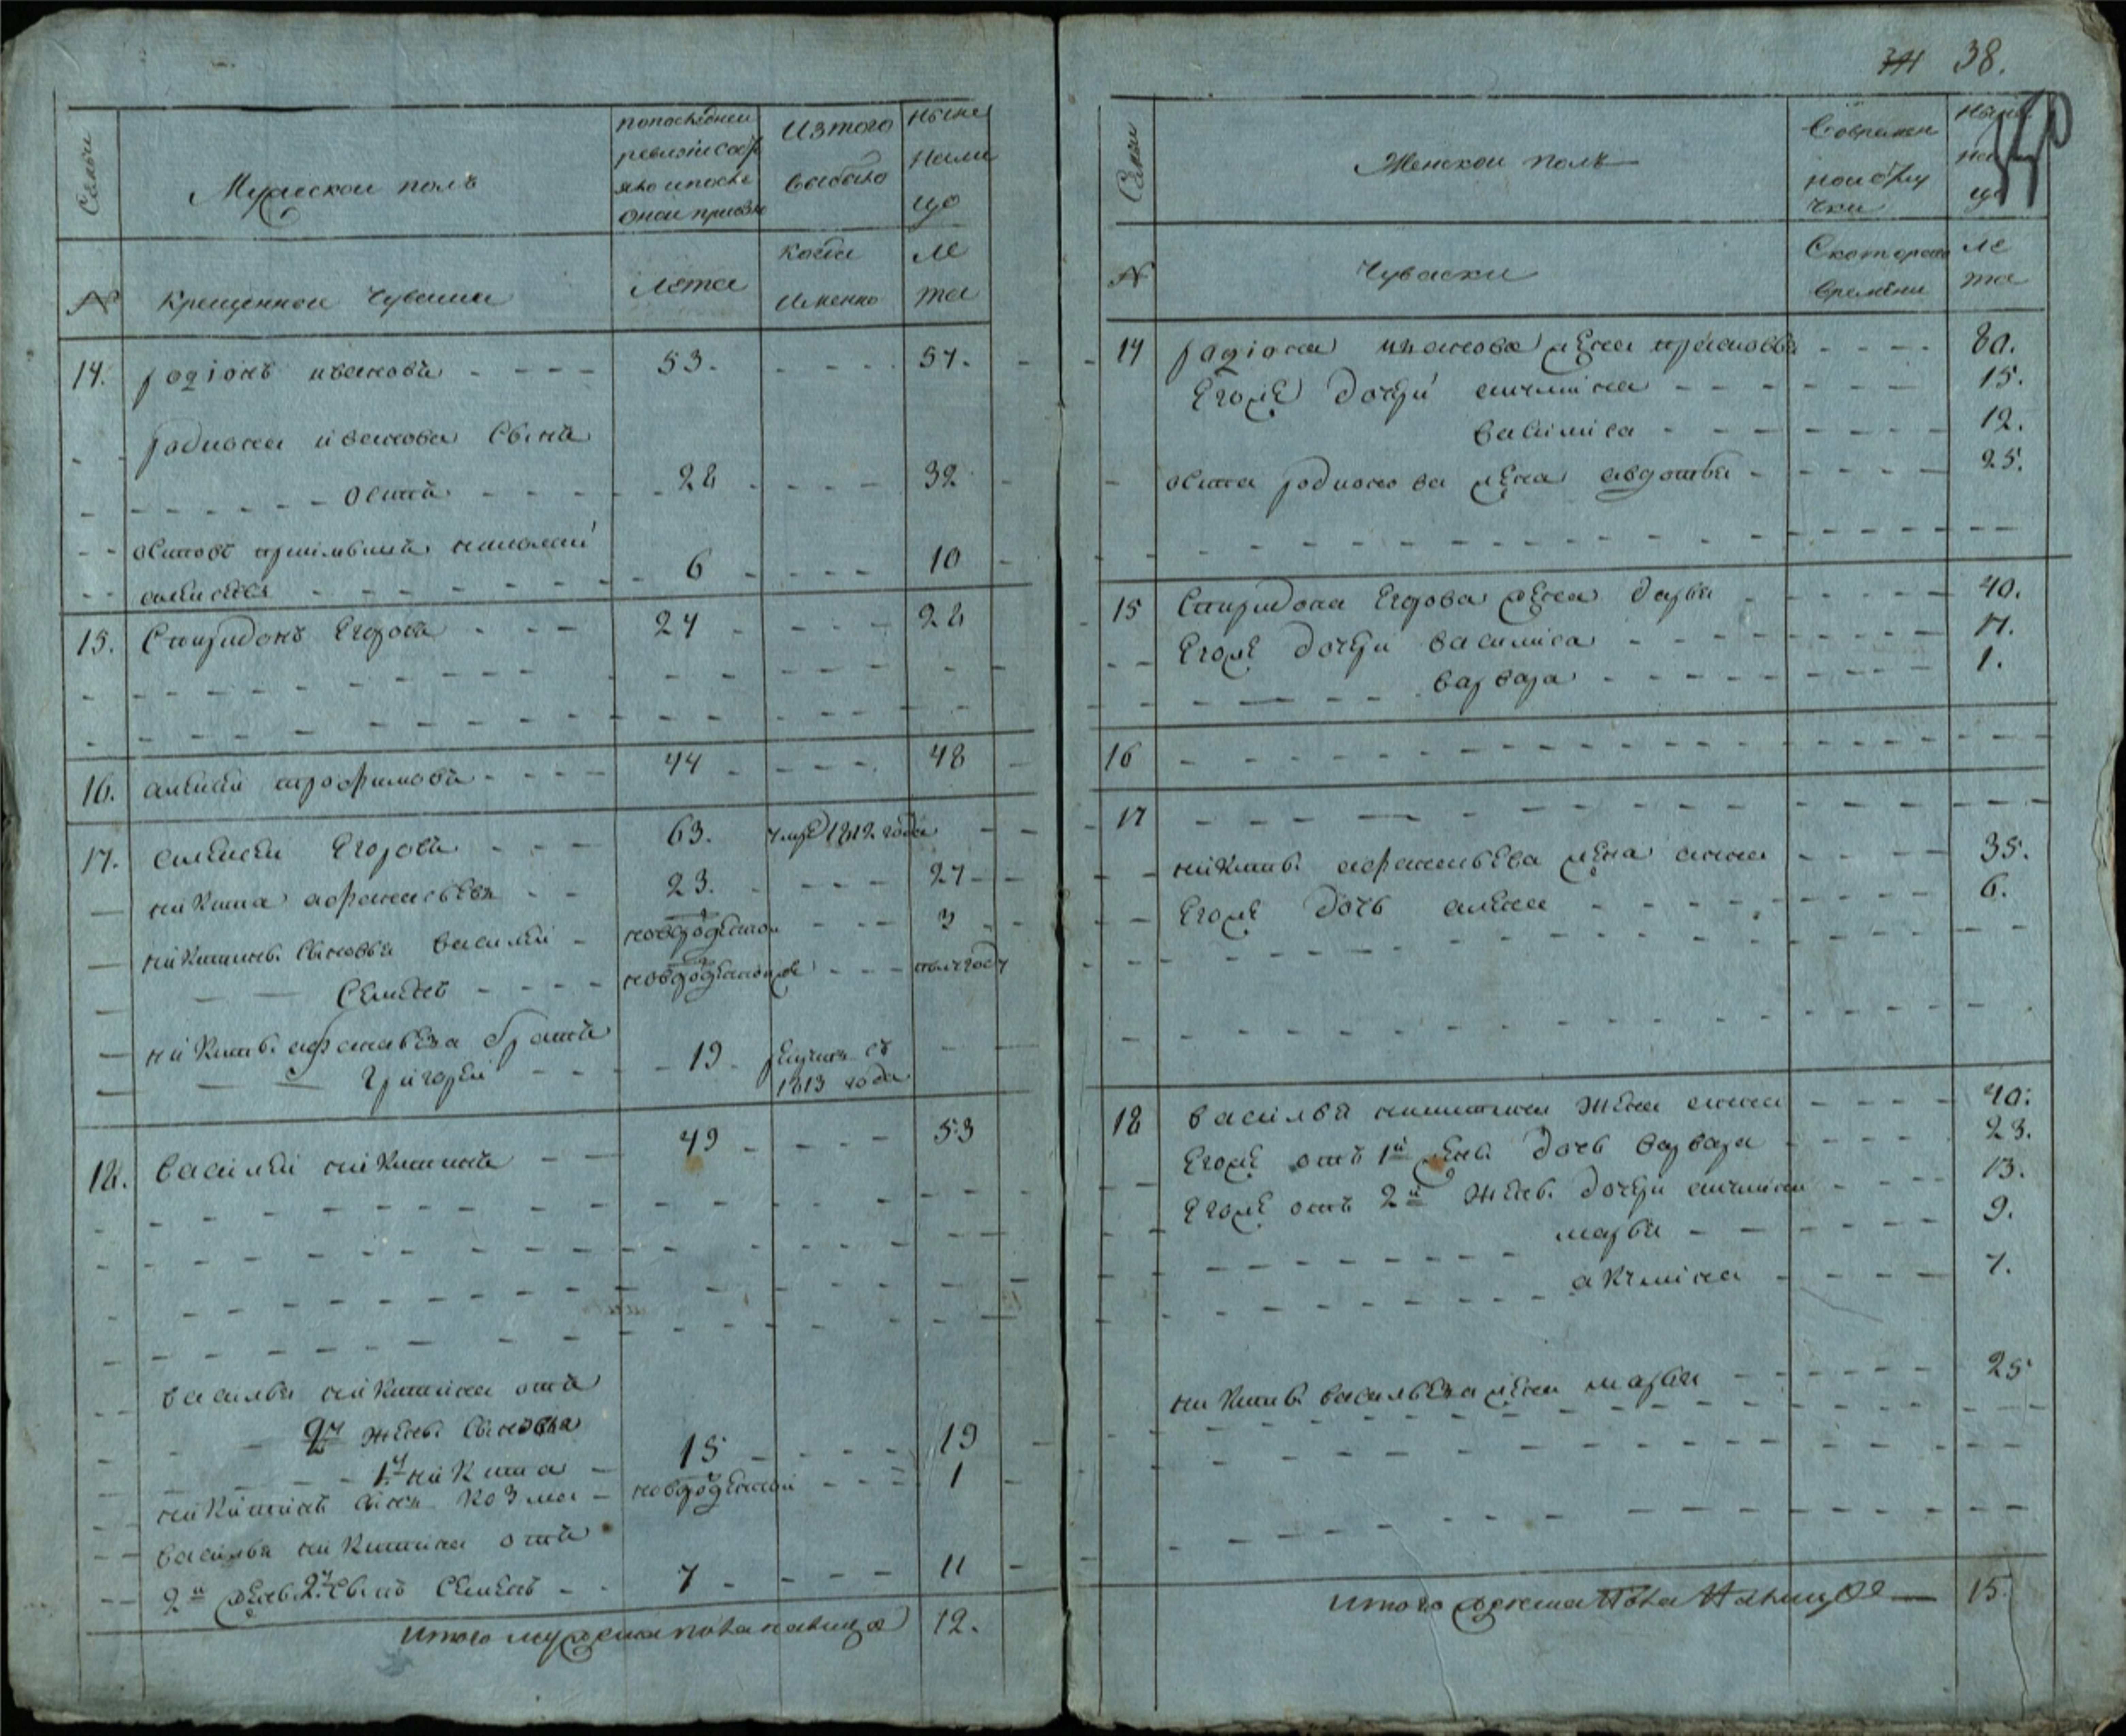 38.
Семьи
Мужеской полъ
попоследней
ревизии сос
яло и после
оной прибы
Изтого
выбыло
ныне
нали
цо
№
крещенной чуваши
Лета
когда
именно
ле
та
14. родіонъ ивановъ 53. 57.
родиона иванова сынъ
осипъ 28 32
осиповъ приимышъ николай
алексеевъ 6 10
15. Спиридонъ Егоровъ 24 28
16. алексей трофимовъ 44 48
17. алексей Егоровъ 63. умре 1812 года
никита афанасьевъ 23. 27
никитины сыновья василей новорожденой 3
Семенъ новорожденой полугоду
никиты афанасьева братъ
григорей 19 рекрутъ съ
1813 года
18. василей никитинъ 49 53
василья никитина отъ
жены сыновья
1й никита 15 19
никитинъ сынъ козма новорожденой 1
василья никитина отъ
2й жены 2й сынъ Семенъ 7 11
итого мужеска пола налицо 12.
Семьи
Женской полъ
Вовремян
ной отлу
чки
ныне
на
цо
№
Чуваски
Скоторого
времени
ле
та
14 родіона иванова жена прасковья 80.
Егоже дочери 15.
василиса 12.
осипа родионова жена авдотья 25.
15 Спиридона Егорова жена дарья 40.
Егоже дочери василиса 17.
варвара 1.
16
17
никиты афанасьева жена анна 35.
Егоже дочь алена 6.
18 василья никитина жена анна 40.
Егоже отъ 1й жены дочь варвара 23.
Егоже отъ 2й жены дочери 13.
марья 9.
акулина 7.
никиты васильева жена марья 25
итого женска пола налицо 15.